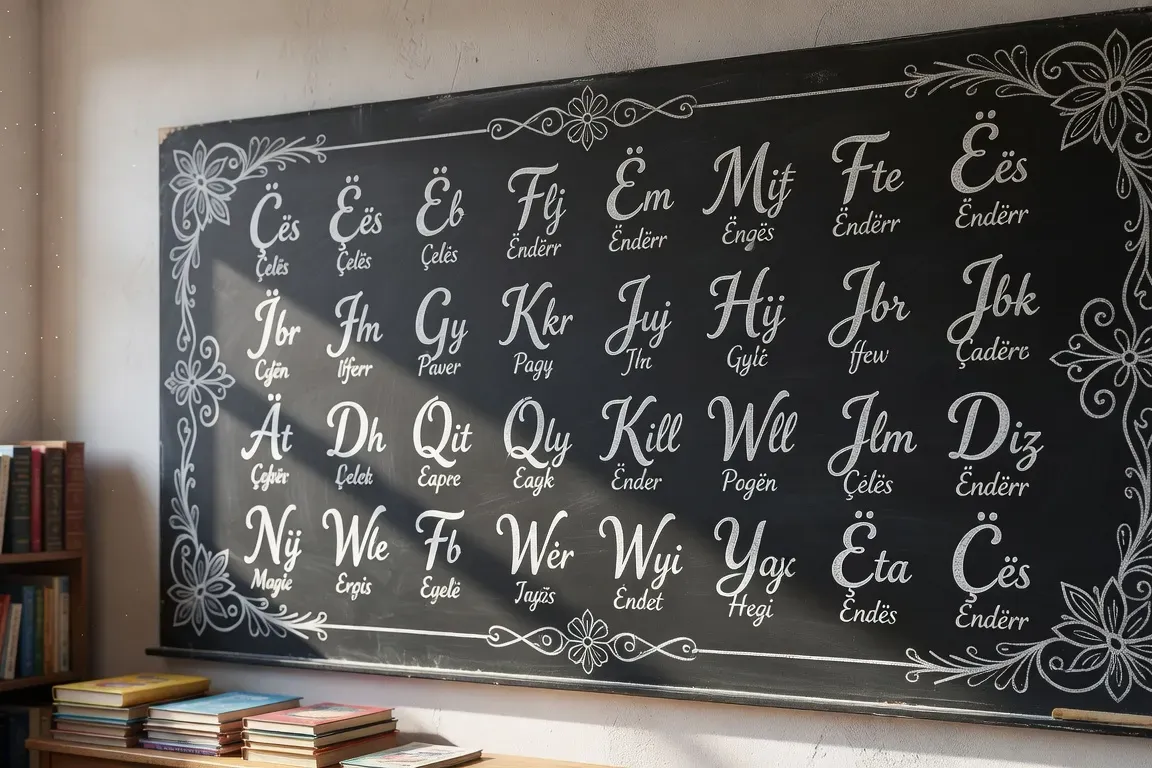 Çës Ëës Ëb Flj Ëm Mit Fte Ëës
Çelës Çelës Çelës Ëndërr Ëndërr Ëngës Ëndërr Ëndërr
Jbr Jhn Gy Kkr Juj Hÿ Jbr Jbk
Paver Pagy Jln ffew Çadërr
Ät Dh Qit Qly Kill Wll Jlm Diz
Eapre Eagk Ënder Pogën Çelës Ëndërr
Nÿ Wle Fb Wër Wyi Yayc Ëta Çës
Magie Ergis Egelë Jayïs Ëndet Hegi Ëndës Ëndërr